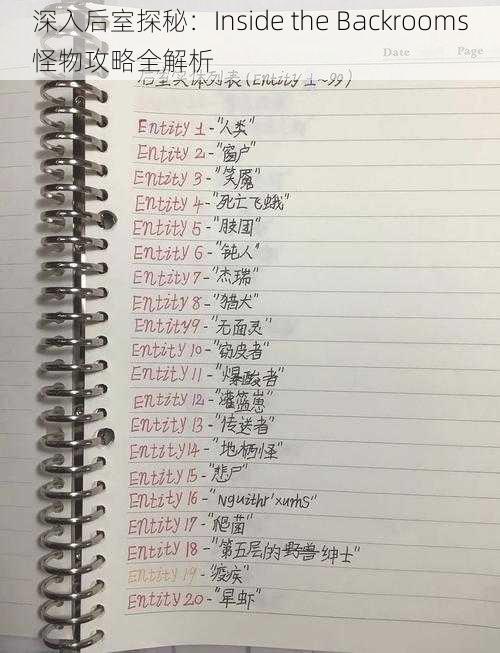 深入后室探秘：Inside the Backrooms
怪物攻略全解析
Date Page
后室实体列表(Entity 1~99)
Entity 1-"人类"
Entity 2-"窗户"
Entity 3-"笑魇"
Entity 4-"死亡飞蛾"
Entity 5-"肢团"
Entity 6-"钝人"
Entity 7-"杰瑞"
Entity 8-"猎犬"
Entity 9-"无面灵"
Entity 10-"窃皮者"
Entity 11-"爆酸者"
Entity 12-"灌篮崽"
Entity 13-"传送者"
Entity 14-"地栖怪"
Entity 15-"悲尸"
Entity 16-"Nguithr'xurhS"
Entity 17-"爬菌"
Entity 18-"第五层的野兽绅士"
Entity 19-"疫疾"
Entity 20-"旱虾"